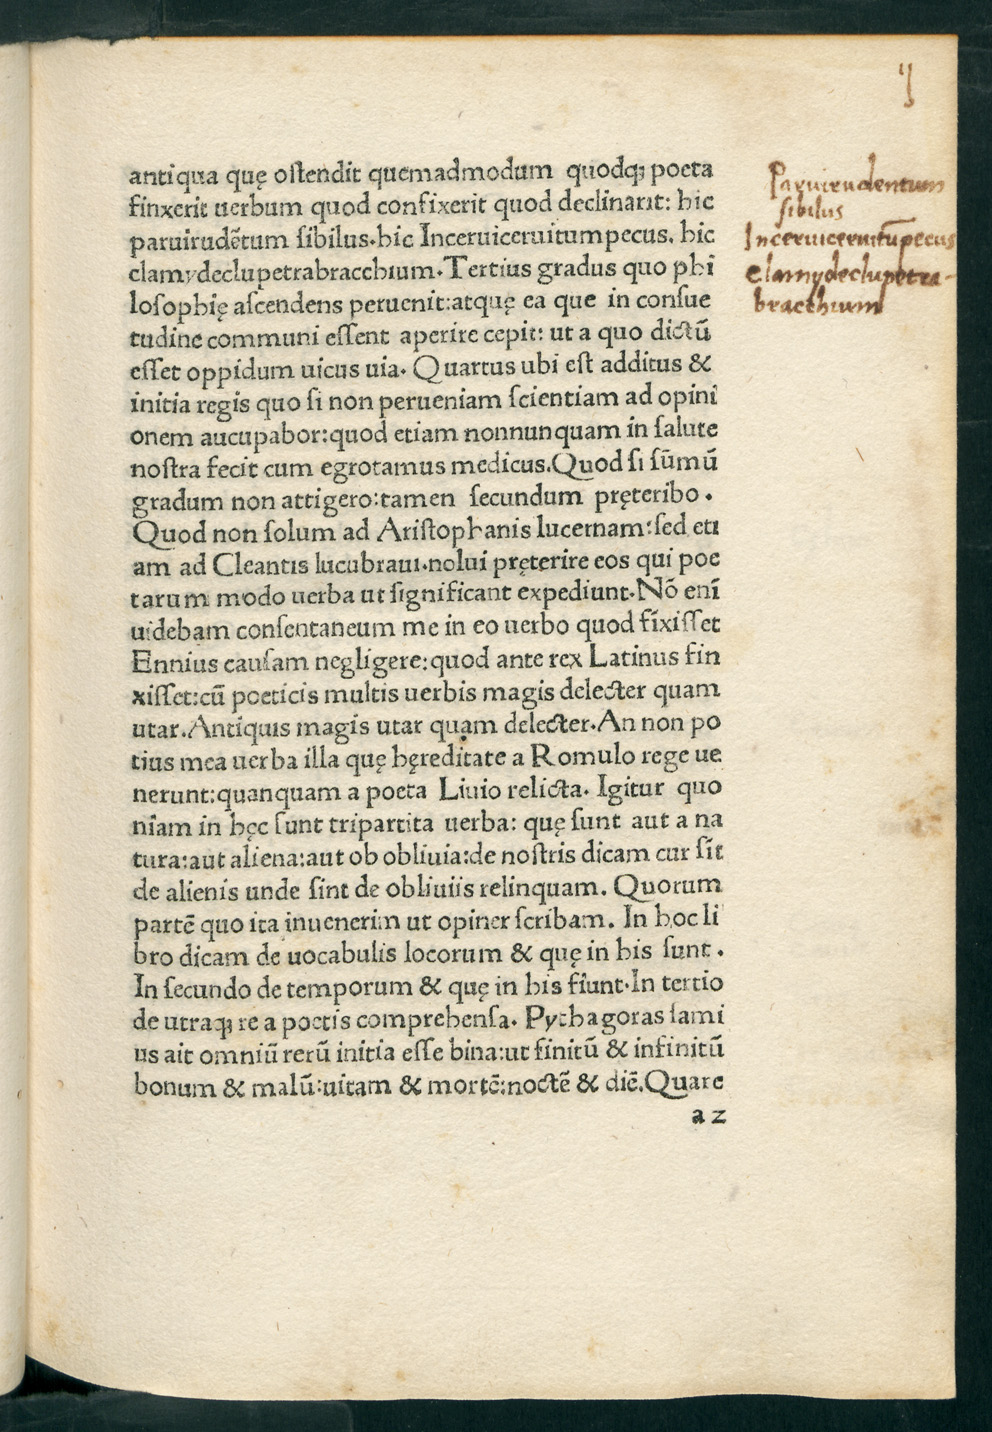 ij
antiqua quę ostendit quemadmodum quodqꝫ poeta
finxerit uerbum quod confixerit quod declinarit: hic
paruirudẽtum sibilus.hic Inceruiceruitumpecus. hic
clamydeclupetrabracchium.Tertius gradus quo phi
losophię ascendens peruenit:atquę ea que in consue
tudine communi essent aperire cepit: ut a quo dictũ
esset oppidum uicus uia. Quartus ubi est additus &
initia regis quo si non perueniam scientiam ad opini
onem aucupabor:quod etiam nonnunquam in salute
nostra fecit cum egrotamus medicus.Quod si sũmũ
gradum non attigero:tamen secundum pręteribo.
Quod non solum ad Aristophanis lucernam:sed eti
am ad Cleantis lucubraui.nolui pręterire eos qui poe
tarum modo uerba ut significant expediunt.Nõ enĩ
uidebam consentaneum me in eo uerbo quod fixisset
Ennius causam negligere:quod ante rex Latinus fin
xisset:cũ poeticis multis uerbis magis delecter quam
utar.Antiquis magis utar quam delecter.An non po
tius mea uerba illa quę hęreditate a Romulo rege ue
nerunt:quanquam a poeta Liuio relicta. Igitur quo
niam in hęc sunt tripartita uerba: quę sunt aut a na
tura:aut aliena:aut ob obliuia:de nostris dicam cur sit
de alienis unde sint de obliuiis relinquam. Quorum
partẽ quo ita inuenerim ut opiner scribam. In hoc li
bro dicam de uocabulis locorum & quę in his sunt.
In secundo de temporum & quę in his fiunt.In tertio
de utraqꝫ re a poetis comprehensa. Pythagoras sami
us ait omniũ rerũ initia esse bina:ut finitũ & infinitũ
bonum & malũ:uitam & mortẽ:noctẽ & diẽ.Quare
a2
Paruirudentum
sibilus
Inceruiceruitũpecus
clamydeclupetra-
bracchium